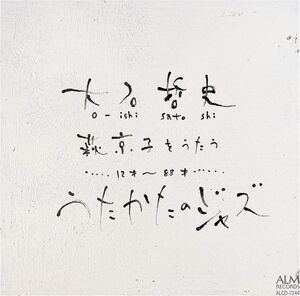 大石哲史
o-ishi satoshi
萩京子をうたう
‥‥‥12才〜88才‥‥‥
うたかたのジャズ
ALM
RECORDS
ALCD-7244